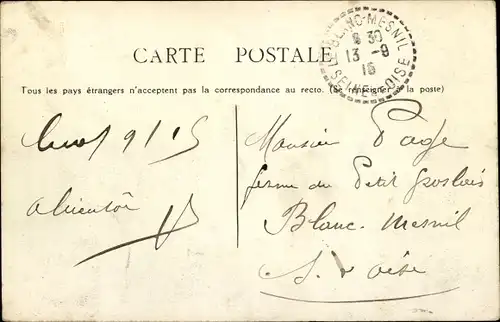 CARTE POSTALE
LE BLANC-MESNIL
8 30
13 -9
15
SEINE-ET-OISE
Tous les pays étrangers n'acceptent pas la correspondance au recto. (Se renseigner à la poste)
9/15
abientôt
Monsieur Page
ferme du Petit Groslay
Blanc-Mesnil
S. & Oise